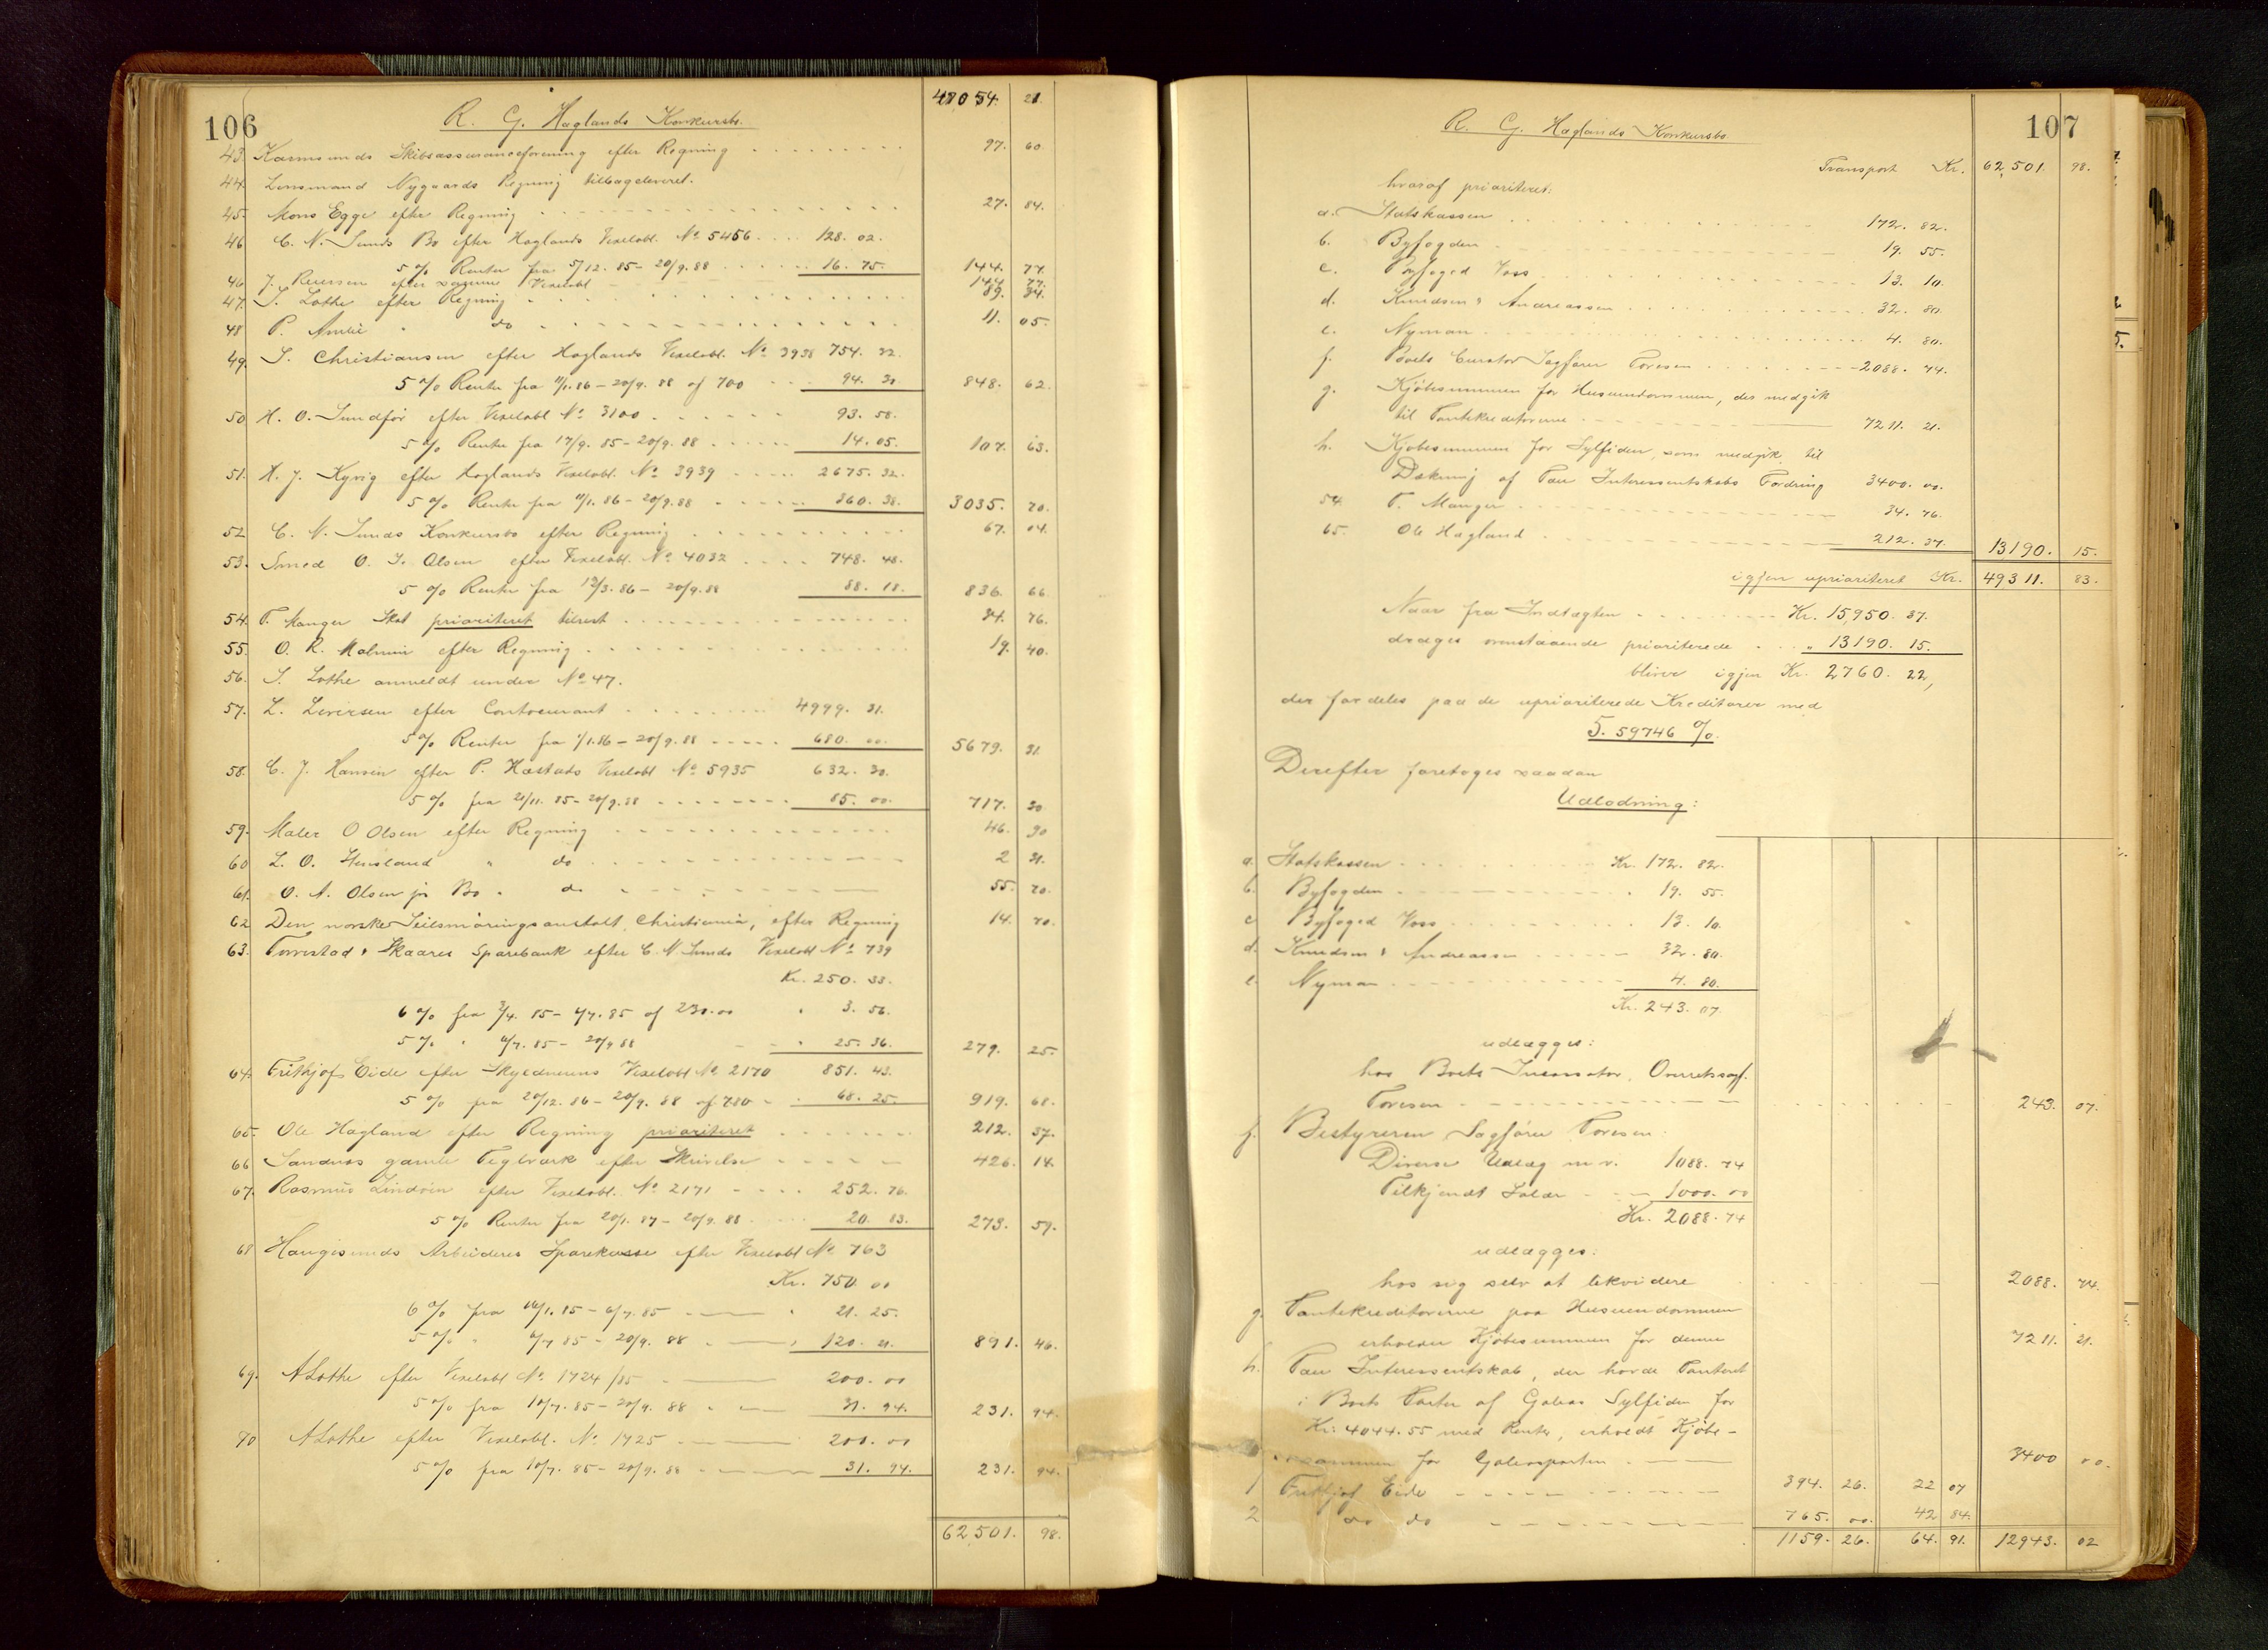 106
R. G. Haglands Konkursbo.
48054. 21.
43. Karmsunds Skibsassuranceforening efter Regning 97. 60.
44. Lensmand Nygaards Regning tilbageleveret.
45. Mons Egge efter Regning 27. 84.
46 C. N. Sunds Bo efter Haglands Vexelobl. No 5456 128. 02.
5 % Renter fra 5/12. 85 - 20/9. 88 16. 75. 144. 77.
46 J. efter samme Vexelobl 144. 77.
47. S. Lothe efter Regning 89. 34.
48 P. Amlie " do 11. 05.
49. S. Christiansen efter Haglands Vexelobl. No 3938 754. 32.
5 % Renter fra 11/1. 86 - 20/9. 88 af 700 94. 30 848. 62.
50 H. O. Sundfør efter Vexelobl No 3100 93. 58.
5 % Renter fra 17/9. 85 - 20/9. 88 14. 05. 107. 63.
51. H. J. Kyvig efter Haglands Vexelobl. No 3939 2675. 32.
5 % Renter fra 11/1. 86 - 20/9. 88 360. 38. 3035. 70.
52 C. N. Sunds Konkursbo efter Regning 67. 04.
53. Smed O. J. Olsen efter Vexelobl. No 4032 748. 48.
5 % Renter fra 12/3. 86 - 20/9. 88 88. 18. 836. 66.
54. T. Manger Skat prioriteret tilrest 34. 76.
55. O. R. Malmin efter Regning 19. 40.
56. S. Lothe anmeldt under No 47.
57. L. Seversen efter Contocurant 4999. 31.
5 % Renter fra 1/1. 86 - 20/9. 88 680. 00. 5679. 31.
58. C. J. Hansen efter P. Hæstads Vexelobl No 5935 632. 30.
5 % fra 21/11. 85 - 20/9. 88 85. 00. 717. 30
59. Maler O Olsen efter Regning 46. 30
60 L. O. " do 2 21.
61. O. A. Olsen jr Bo " do 55. 70.
62 Den norske Seilsmøringsanstalt, Christiania, efter Regning 14. 70.
63. Torvestad & Skaares Sparebank efter C. N. Sunds Vexelobl No 739
Kr. 250. 33.
6 % fra 3/4. 85 - 4/7. 85 af 230.00 " 3. 56.
5 % " 4/7. 85 - 20/9 88 " 25. 36. 279. 25.
64. Frithjof Eide efter Skyldnerens Vexelobl No 2170 851. 43.
5 % fra 20/12. 86 - 20/9. 88 af 780 68. 25. 919. 68.
65. Ole Hagland efter Regning prioriteret 212. 37.
66 Sandnes gamle Teglværk efter Skrivelse 426. 14.
67. Rasmus Lindøen efter Vexelobl. No 2171 252. 76.
5 % Renter fra 20/1. 87 - 20/9. 88 20. 83. 273. 59.
68 Haugesunds Arbeideres Sparekasse efter Vexelobl No 763
Kr. 750. 00
6 % fra 16/1. 85 - 6/7. 85 " 21. 25.
5 % " 6/7 85 - 20/9. 88 " 120. 21. 891. 46.
69. A Lothe efter Vexelobl No 1724/85 200. 00
5 % fra 10/7. 85 - 20/9. 88 31. 94. 231. 94.
70 A Lothe efter Vexelobl. No 1725 200. 00
5 % fra 10/7. 85 - 20/9. 88 31. 94. 231. 94.
62,501. 98.
107
R. G. Haglands Konkursbo
Transport Kr. 62,501. 98.
hvoraf prioriteret:
a. Statskassen 172. 82.
b. Byfogden 19. 55.
c. Byfoged Voss 13. 10.
d. Knudsen & Andreassen 32. 80.
e. Nyman 4. 80.
f. Boets Curator Sagfører Toresen 2088. 74.
g. Kjøbesummen for Huseiendommen, der medgik
til Pantekreditorerne 7211. 21.
h. Kjøbesummen for Sylfiden, som medgik til
Dækning af Tau Interessentskabs Fordring 3400. 00.
54. T. Manger 34. 76.
65. Ole Hagland 212. 37. 13190. 15.
igjen uprioriteret Kr. 49311. 83.
Naar fra Indtægten Kr. 15,950. 37.
drages ovenstaaende prioriterede " 13190. 15.
bliver igjen Kr. 2760. 22,
der fordeles paa de uprioriterede Kreditorer med
5. 59746 %.
Derefter foretoges saadan
Udlodning:
a. Statskassen Kr. 172. 82.
b. Byfogden " 19. 55.
c Byfoged Voss 13. 10.
d. Knudsen & Andreassen 32. 80.
e. Nyman 4. 80.
Kr. 243. 07.
udlægges:
hos Boets Incassator, Overretssagf.
Toresen 243. 07.
f. Bestyreren, Sagfører Toresen:
Diverse Udlæg m. v. 1088. 74
Tilkjendt Salær 1000. 00
Kr. 2088. 74
udlægges:
hos sig selv at likvidere 2088. 74.
g. Pantekreditorerne paa Huseiendommen
erholder Kjøbesummen for denne 7211. 21.
h. Tau Interessentskab, der havde Panteret
i Boets Parter af Galeas Sylfiden for
Kr. 4044. 55 med Renter, erholdt Kjøbe-
summen for Galeasparten 3400 00.
1 Frithjof Eide 394. 26. 22 07
2 do do 765. 00. 42 84.
1159. 26. 64. 91. 12943. 02